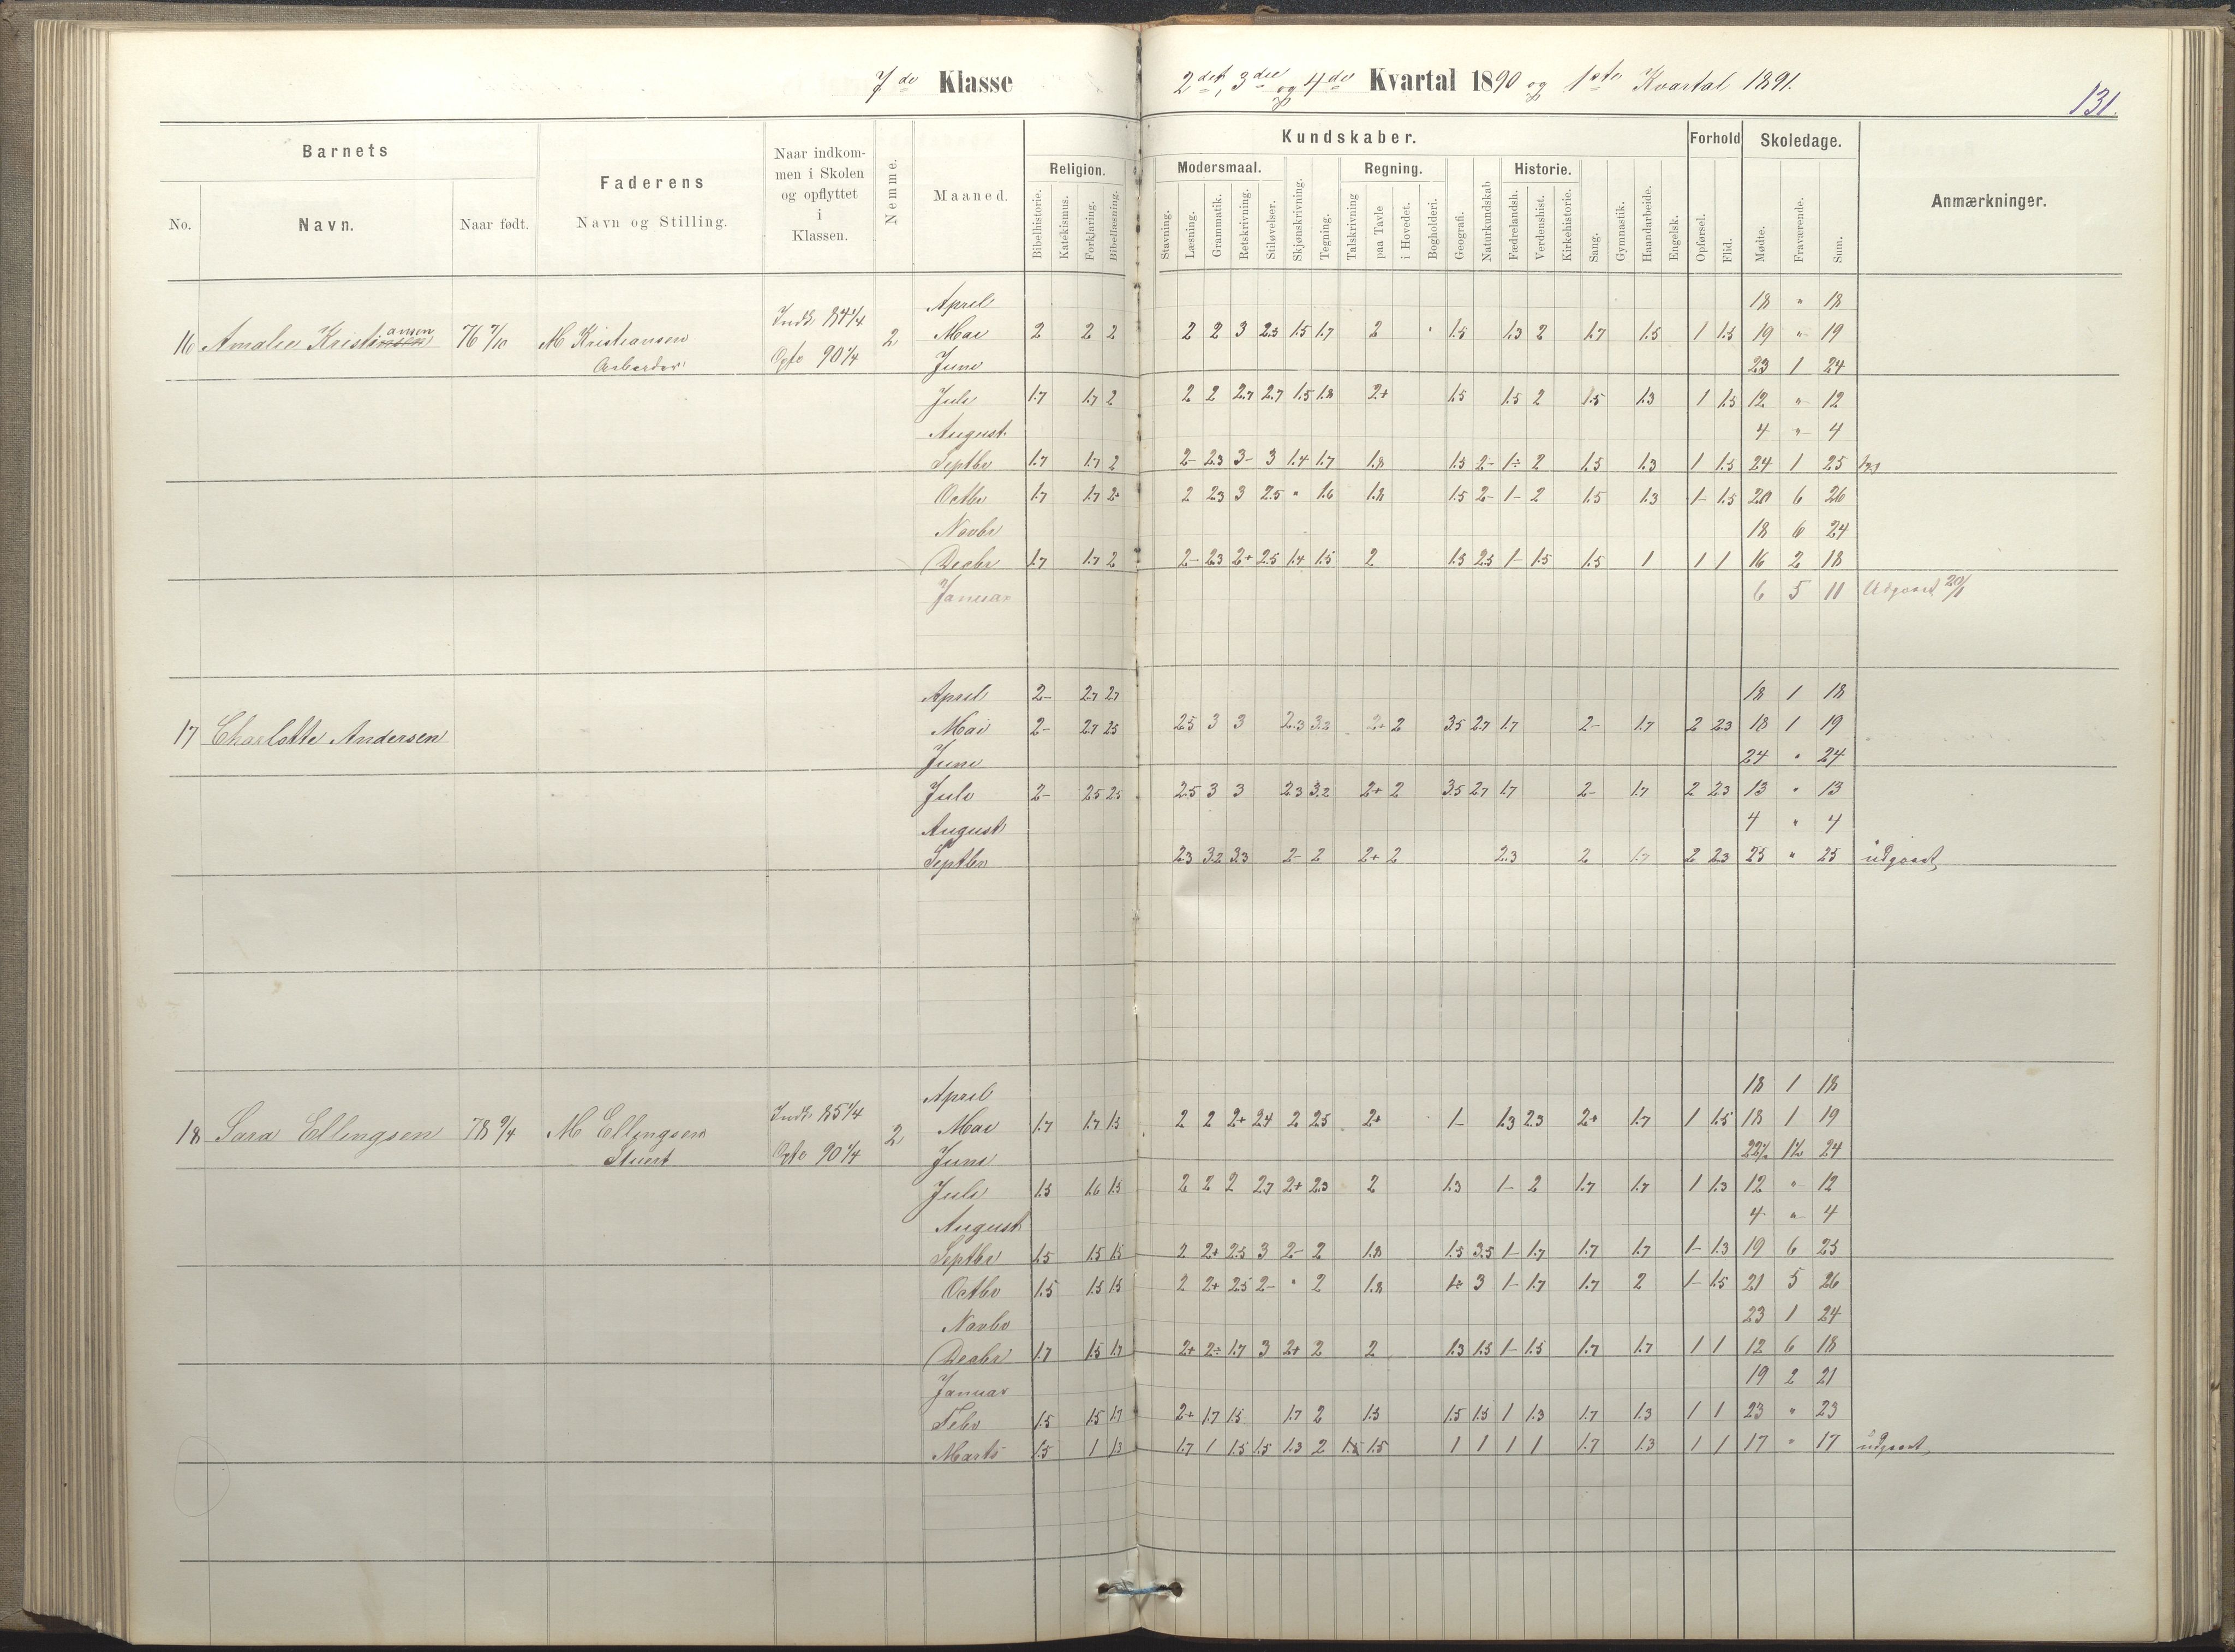 7de Klasse 2det, 3die og 4de Kvartal 1890 og 1ste Kvartal 1891.
131.
Barnets Faderens Naar indkommen i Skolen og opflyttet i Klassen. Nemme. Maaned. Kundskaber. Forhold Skoledage. Anmærkninger.
Religion. Modersmaal. Regning. Historie.
No. Navn. Naar født. Navn og Stilling.
Bibelhistorie. Katekismus. Forklaring. Bibellæsning. Stavning. Læsning. Grammatik. Retskrivning. Stiløvelser. Skjønskrivning. Tegning. Talskrivning paa Tavle i Hovedet. Bogholderi. Geografi. Naturkundskab Fædrelandsh. Verdenshist. Kirkehistorie. Sang. Gymnastik. Haandarbeide. Engelsk. Opførsel. Flid. Mødte. Fraværende. Sum.
April 18 " 18
16 Amalie Kristiansen 76 7/10 M Kristiansen Arbeider Inds 84 1/4 Opfl 90 1/4 2
Mai 2 2 2 2 2 3 2.3 1.5 1.7 2 1.5 1.3 2 1.7 1.5 1 1.5 19 " 19
Juni 23 1 24
Juli 1.7 1.7 2 2 2 2.7 2.7 1.5 1.8 2+ 1.5 1.5 2 1.5 1.3 1 1.5 12 " 12
August 4 " 4
Septbr 1.7 1.7 2 2- 2.3 3- 3 1.4 1.7 1.8 1.3 2- 1÷ 2 1.5 1.3 1 1.5 24 1 25
Octbr 1.7 1.7 2+ 2 2.3 3 2.5 " 1.6 1.8 1.5 2- 1- 2 1.5 1.3 1- 1.5 20 6 26
Novbr 18 6 24
Decbr 1.7 1.7 2 2- 2.3 2+ 2.5 1.4 1.5 2 1.3 2.5 1- 1.5 1.5 1 1 1 16 2 18
Januar 6 5 11 Udgaaet 20/1
April 2- 2.7 2.7 18 1 18
17 Charlotte Andersen
Mai 2- 2.7 2.5 2.5 3 3 2.3 3.2 2+ 2 3.5 2.7 1.7 2- 1.7 2 2.3 18 1 19
Juni 24 " 24
Juli 2- 2.5 2.5 2.5 3 3 2.3 3.2 2+ 2 3.5 2.7 1.7 2- 1.7 2 2.3 13 " 13
August 4 " 4
Septbr 2.3 3.2 3.3 2- 2 2+ 2 2.3 2 1.7 2 2.3 25 " 25 udgaaet
April 18 1 18
18 Sara Ellingsen 78 9/4 M Ellingsen Stuert Inds. 85 1/4 Opfl 90 1/4 2
Mai 1.7 1.7 1.5 2 2 2+ 2.4 2 2.5 2+ 1- 1.3 2.3 2+ 1.7 1 1.5 18 1 19
Juni 22½ 1½ 24
Juli 1.5 1.6 1.5 2 2 2 2.7 2+ 2.3 2 1.3 1- 2 1.7 1.7 1 1.3 12 " 12
August 4 " 4
Septbr 1.5 1.5 1.5 2 2+ 2.5 3 2- 2 1.8 1.5 3.5 1- 1.7 1.7 1.7 1- 1.3 19 6 25
Octbr 1.5 1.5 1.5 2 2+ 2.5 2- " 2 1.8 1÷ 3 1- 1.7 1.7 2 1- 1.5 21 5 26
Novbr 23 1 24
Decbr 1.7 1.5 1.7 2+ 2÷ 1.7 3 2+ 2 2 1.3 1.5 1- 1.5 1.7 1.7 1 1 12 6 18
Januar 19 2 21
Febr 1.5 1.5 1.7 2+ 1.7 1.5 1.7 2 1.5 1.5 1.5 1 1.3 1.7 1.3 1 1 23 " 23
Marts 1.5 1 1.3 1.7 1 1.5 1.5 1.3 2 1.5 1.5 1 1 1 1 1.7 1.3 1 1 17 " 17 udgaaet